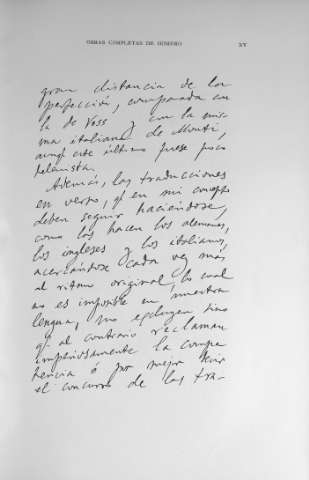 OBRAS COMPLETAS DE HOMERO XV
gran distancia de la
perfección, comparada con
la de Voss y con la mis-
ma italiana de Monti,
aunq̃ este último fuese poco
helenista.
Además, las traducciones
en verso, q̃ en mi concepto
deben seguir haciéndose,
como las hacen los alemanes,
los ingleses y los italianos,
acercándose cada vez más
al ritmo original, lo cual
no es imposible en nuestra
lengua, no excluyen sino
q̃ al contrario reclaman
imperiosamente la compe
tencia ó por mejor decir
el concurso de las tra-